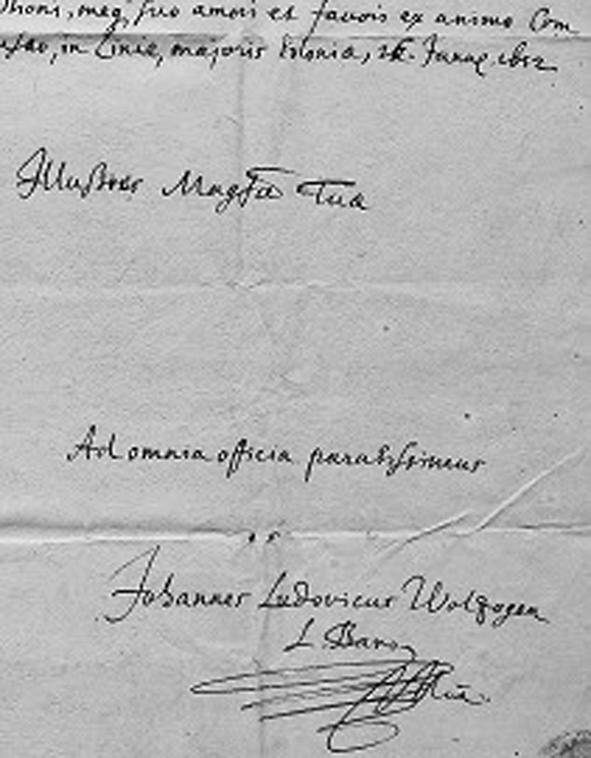 meq, suo amori et favoris ex animo Com
in Cinia, majoris Polonia, Junii
Illustres Magtia Tua
Ad omnia officia paratissimus
Johannes Ludovicus Wolzogen
L. Baro